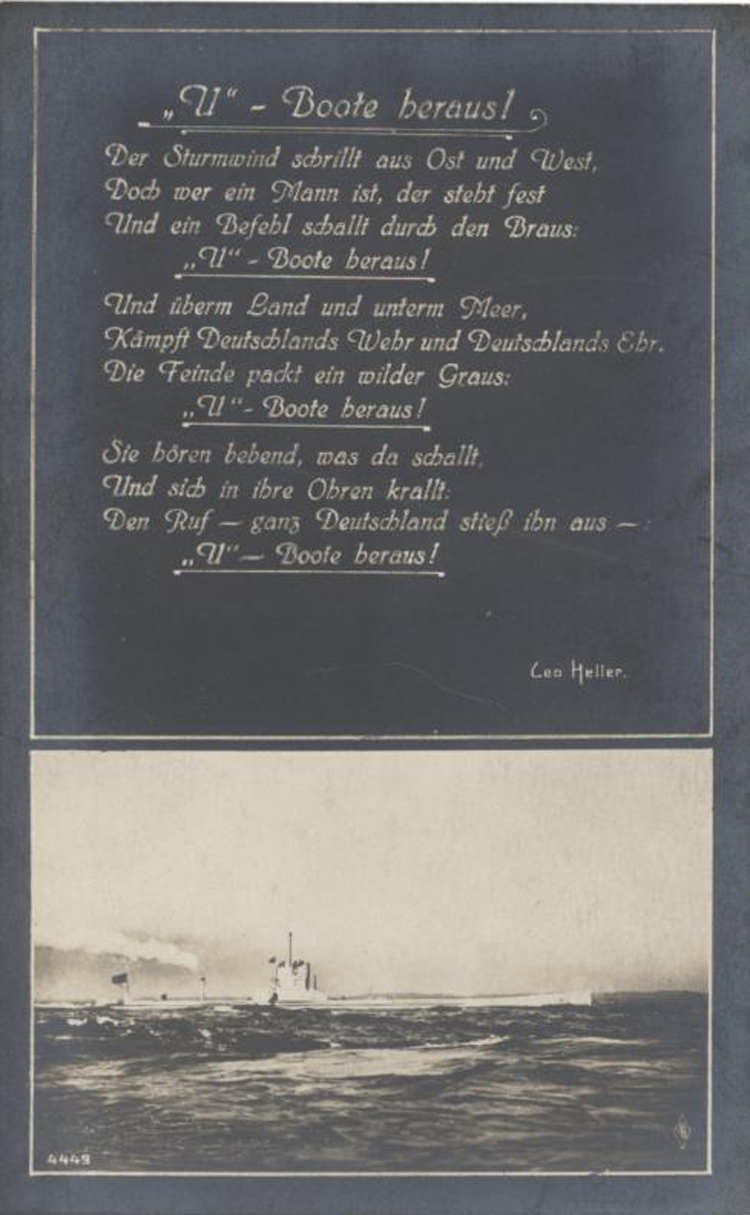 „U“ - Boote heraus!
Der Sturmwind schrillt aus Ost und West,
Doch wer ein Mann ist, der steht fest
Und ein Befehl schallt durch den Braus:
„U“ - Boote heraus!
Und überm Land und unterm Meer,
Kämpft Deutschlands Wehr und Deutschlands Ehr.
Die Feinde packt ein wilder Graus:
„U“ - Boote heraus!
Sie hören bebend, was da schallt,
Und sich in ihre Ohren krallt:
Den Ruf — ganz Deutschland stieß ihn aus —:
„U“ — Boote heraus!
Leo Heller.
4449